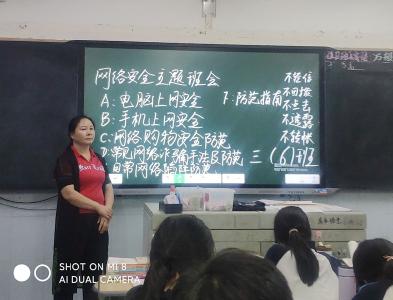 网络安全主题班会
A:电脑上网安全
B:手机上网安全
C:网络购物安全防范
D:常见网络诈骗手法及防范
日常网络陷阱防范
F:防范指南
不轻信
不回拨
不点击
不透露
不转帐
三(6)班
SHOT ON MI 8
AI DUAL CAMERA